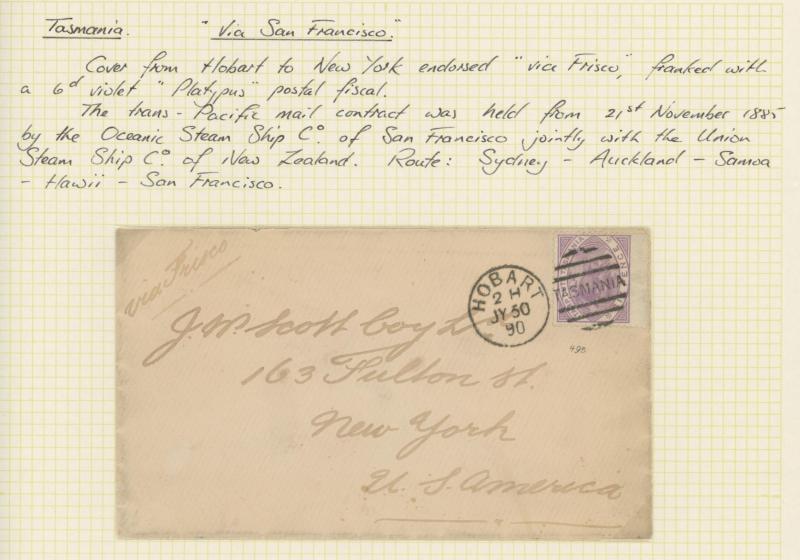 Tasmania. "Via San Francisco."
Cover from Hobart to New York endorsed "via Frisco", franked with
a 6d violet "Platypus" postal fiscal.
The trans-Pacific mail contract was held from 21st November 1885
by the Oceanic Steam Ship Co. of San Francisco jointly with the Union
Steam Ship Co. of New Zealand. Route: Sydney - Auckland - Samoa
- Hawii - San Francisco.
via Frisco
HOBART
2 H
JY 30
90
TASMANIA
J. W. Scott Coy L
163 Fulton St.
New York
U. S. America